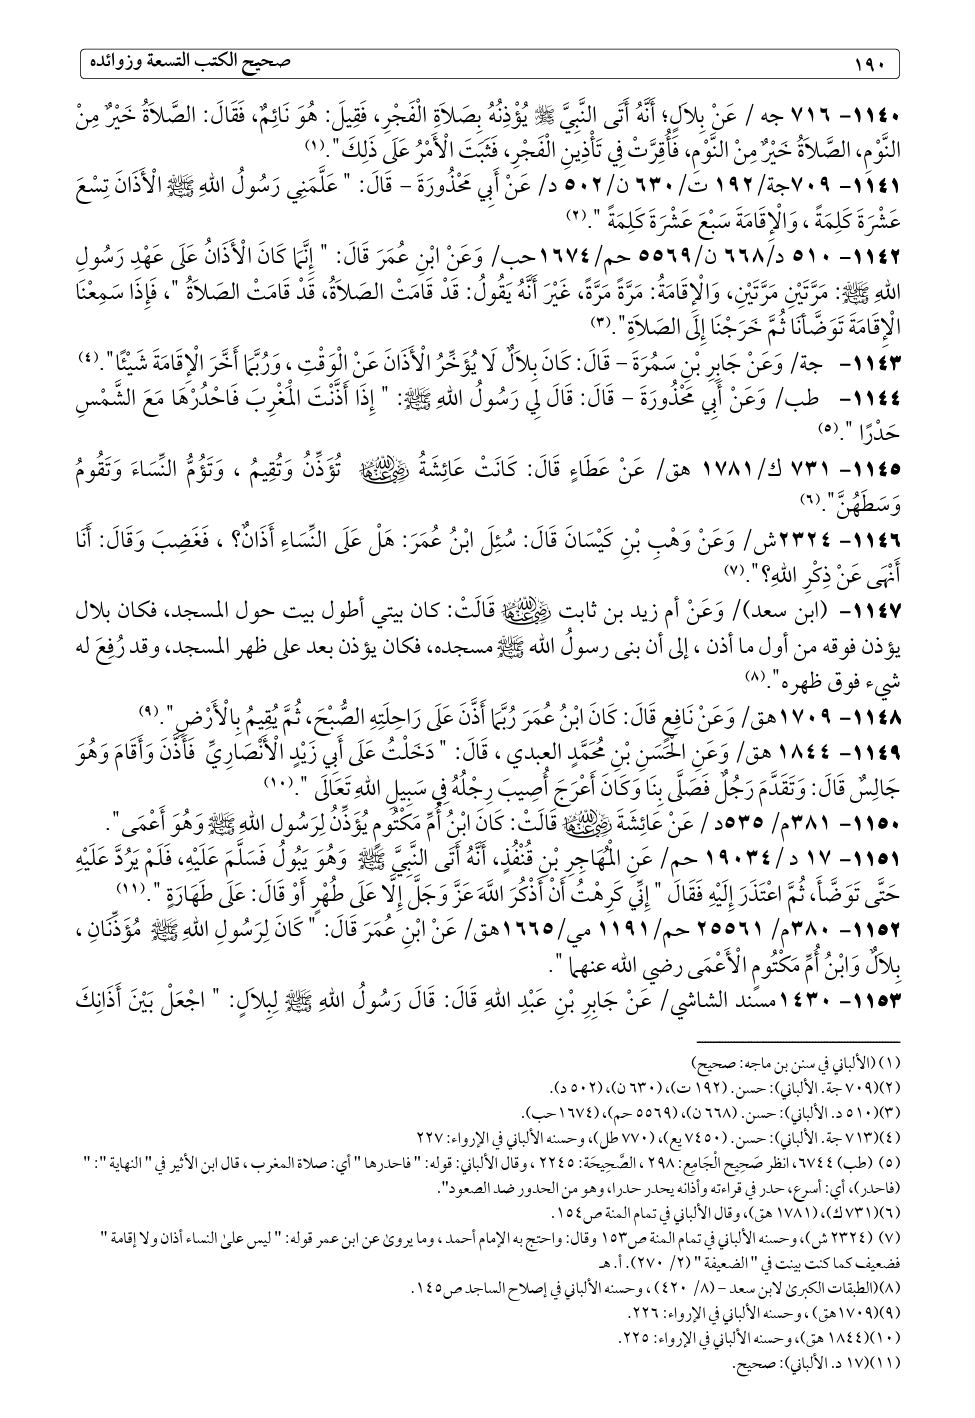 ١٩٠ صحيح الكتب التسعة وزوائده
١١٤٠- ٧١٦ جه / عَنْ بِلَالٍ؛ أَنَّهُ أَتَى النَّبِيَّ ﷺ يُؤْذِنُهُ بِصَلَاةِ الْفَجْرِ، فَقِيلَ: هُوَ نَائِمٌ، فَقَالَ: الصَّلَاةُ خَيْرٌ مِنْ
النَّوْمِ، الصَّلَاةُ خَيْرٌ مِنْ النَّوْمِ، فَأُقِرَّتْ فِي تَأْذِينِ الْفَجْرِ، فَثَبَتَ الْأَمْرُ عَلَى ذَلِكَ".(١)
١١٤١- ٧٠٩جة/ ١٩٢ ت/ ٦٣٠ ن/ ٥٠٢ د/ عَنْ أَبِي مَحْذُورَةَ – قَالَ: " عَلَّمَنِي رَسُولُ اللهِ ﷺ الْأَذَانَ تِسْعَ
عَشْرَةَ كَلِمَةً ، وَالْإِقَامَةَ سَبْعَ عَشْرَةَ كَلِمَةً ".(٢)
١١٤٢- ٥١٠ د/ ٦٦٨ ن/ ٥٥٦٩ حم/ ١٦٧٤حب/ وَعَنْ ابْنِ عُمَرَ قَالَ: " إِنَّمَا كَانَ الْأَذَانُ عَلَى عَهْدِ رَسُولِ
اللهِ ﷺ: مَرَّتَيْنِ مَرَّتَيْنِ، وَالْإِقَامَةُ: مَرَّةً مَرَّةً، غَيْرَ أَنَّهُ يَقُولُ: قَدْ قَامَتْ الصَّلَاةُ، قَدْ قَامَتْ الصَّلَاةُ "، فَإِذَا سَمِعْنَا
الْإِقَامَةَ تَوَضَّأْنَا ثُمَّ خَرَجْنَا إِلَى الصَّلَاةِ".(٣)
١١٤٣- جة/ وَعَنْ جَابِرِ بْنِ سَمُرَةَ – قَالَ: كَانَ بِلَالٌ لَا يُؤَخِّرُ الْأَذَانَ عَنْ الْوَقْتِ ، وَرُبَّمَا أَخَّرَ الْإِقَامَةَ شَيْئًا".(٤)
١١٤٤- طب/ وَعَنْ أَبِي مَحْذُورَةَ – قَالَ: قَالَ لِي رَسُولُ اللهِ ﷺ: " إِذَا أَذَّنْتَ الْمَغْرِبَ فَاحْدُرْهَا مَعَ الشَّمْسِ
حَدْرًا ".(٥)
١١٤٥- ٧٣١ ك/ ١٧٨١ هق/ عَنْ عَطَاءٍ قَالَ: كَانَتْ عَائِشَةُ رضي الله عنها تُؤَذِّنُ وَتُقِيمُ ، وَتَؤُمُّ النِّسَاءَ وَتَقُومُ
وَسَطَهُنَّ".(٦)
١١٤٦- ٢٣٢٤ش/ وَعَنْ وَهْبِ بْنِ كَيْسَانَ قَالَ: سُئِلَ ابْنُ عُمَرَ: هَلْ عَلَى النِّسَاءِ أَذَانٌ؟ ، فَغَضِبَ وَقَالَ: أَنَا
أَنْهَى عَنْ ذِكْرِ اللهِ؟".(٧)
١١٤٧- (ابن سعد)/ وَعَنْ أم زيد بن ثابت رضي الله عنها قَالَتْ: كان بيتي أطول بيت حول المسجد، فكان بلال
يؤذن فوقه من أول ما أذن ، إلى أن بنى رسولُ الله ﷺ مسجده، فكان يؤذن بعد على ظهر المسجد، وقد رُفِعَ له
شيء فوق ظهره".(٨)
١١٤٨- ١٧٠٩هق/ وَعَنْ نَافِعٍ قَالَ: كَانَ ابْنُ عُمَرَ رُبَّمَا أَذَّنَ عَلَى رَاحِلَتِهِ الصُّبْحَ، ثُمَّ يُقِيمُ بِالْأَرْضِ".(٩)
١١٤٩- ١٨٤٤ هق/ وَعَنِ الْحَسَنِ بْنِ مُحَمَّدٍ العبدي ، قَالَ: " دَخَلْتُ عَلَى أَبِي زَيْدٍ الْأَنْصَارِيِّ فَأَذَّنَ وَأَقَامَ وَهُوَ
جَالِسٌ قَالَ: وَتَقَدَّمَ رَجُلٌ فَصَلَّى بِنَا وَكَانَ أَعْرَجَ أُصِيبَ رِجْلُهُ فِي سَبِيلِ اللهِ تَعَالَى ".(١٠)
١١٥٠- ٣٨١م/ ٥٣٥د / عَنْ عَائِشَةَ رضي الله عنها قَالَتْ: كَانَ ابْنُ أُمِّ مَكْتُومٍ يُؤَذِّنُ لِرَسُولِ اللهِ ﷺ وَهُوَ أَعْمَى".
١١٥١- ١٧ د / ١٩٠٣٤ حم/ عَنِ الْمُهَاجِرِ بْنِ قُنْفُذٍ، أَنَّهُ أَتَى النَّبِيَّ ﷺ وَهُوَ يَبُولُ فَسَلَّمَ عَلَيْهِ، فَلَمْ يَرُدَّ عَلَيْهِ
حَتَّى تَوَضَّأَ، ثُمَّ اعْتَذَرَ إِلَيْهِ فَقَالَ " إِنِّي كَرِهْتُ أَنْ أَذْكُرَ اللهَ عَزَّ وَجَلَّ إِلَّا عَلَى طُهْرٍ أَوْ قَالَ: عَلَى طَهَارَةٍ ".(١١)
١١٥٢- ٣٨٠م/ ٢٥٥٦١ حم/ ١١٩١ مي/ ١٦٦٥هق/ عَنْ ابْنِ عُمَرَ قَالَ: " كَانَ لِرَسُولِ اللهِ ﷺ مُؤَذِّنَانِ ،
بِلَالٌ وَابْنُ أُمِّ مَكْتُومٍ الْأَعْمَى رضي الله عنهما ".
١١٥٣- ١٤٣٠مسند الشاشي/ عَنْ جَابِرِ بْنِ عَبْدِ اللهِ قَالَ: قَالَ رَسُولُ اللهِ ﷺ لِبِلَالٍ: " اجْعَلْ بَيْنَ أَذَانِكَ
(١) (الألباني في سنن بن ماجه: صحيح)
(٢)(٧٠٩ جة. الألباني): حسن. (١٩٢ ت)، (٦٣٠ ن)، (٥٠٢ د).
(٣)(٥١٠ د. الألباني): حسن. (٦٦٨ ن)، (٥٥٦٩ حم)، (١٦٧٤حب).
(٤)(٧١٣ جة. الألباني): حسن. (٧٤٥٠ يع)، (٧٧٠ طل)، وحسنه الألباني في الإرواء: ٢٢٧
(٥) (طب) ٦٧٤٤، انظر صَحِيح الْجَامِع: ٢٩٨ ، الصَّحِيحَة: ٢٢٤٥ ، وقال الألباني: قوله: " فاحدرها " أي: صلاة المغرب ، قال ابن الأثير في " النهاية ": "
(فاحدر)، أي: أسرع، حدر في قراءته وأذانه يحدر حدرا، وهو من الحدور ضد الصعود".
(٦)(٧٣١ك)، (١٧٨١ هق)، وقال الألباني في تمام المنة ص١٥٤.
(٧) (٢٣٢٤ ش)، وحسنه الألباني في تمام المنة ص١٥٣ وقال: واحتج به الإمام أحمد ، وما يروىٰ عن ابن عمر قوله: " ليس علىٰ النساء أذان ولا إقامة "
فضعيف كما كنت بينت في " الضعيفة " (٢/ ٢٧٠). أ. هـ
(٨)(الطبقات الكبرىٰ لابن سعد – (٨/ ٤٢٠) ، وحسنه الألباني في إصلاح الساجد ص١٤٥.
(٩)(١٧٠٩هق) ، وحسنه الألباني في الإرواء: ٢٢٦.
(١٠)(١٨٤٤ هق)، وحسنه الألباني في الإرواء: ٢٢٥.
(١١)(١٧ د. الألباني): صحيح.